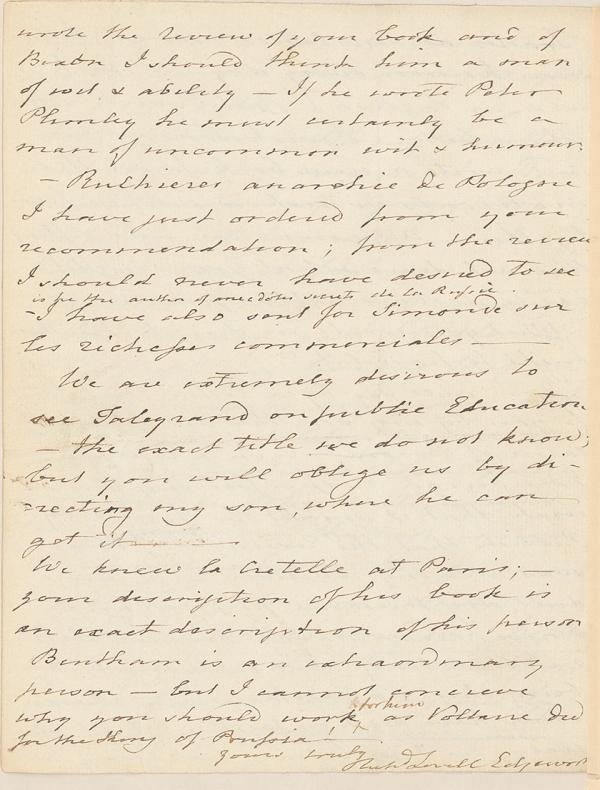 wrote the review of your book and of
Bexon I should think him a man
of wit & ability — If he wrote Peter
Plimley he must certainly be a
man of uncommon wit & humour.
— Rulhieres anarchie de Pologne
I have just ordered from your
recommendation; from the review
I should never have desired to see
is he the author of anecdotes secrets de la Russie.
— I have also sent for Simonde sur
les richesses commerciales —
We are extremely desirous to
see Talegrand on public Education
— the exact title we do not know;
but you will oblige us by di-
-recting my son, where he can
get it —
We knew la Cretelle at Paris; —
your description of his book is
an exact description of his person
Bentham is an extraordinary
person — but I cannot conceive
for him
why you should work ^ as Voltaire did
for the King of Prussia!
yours truly
Richd Lovell Edgeworth